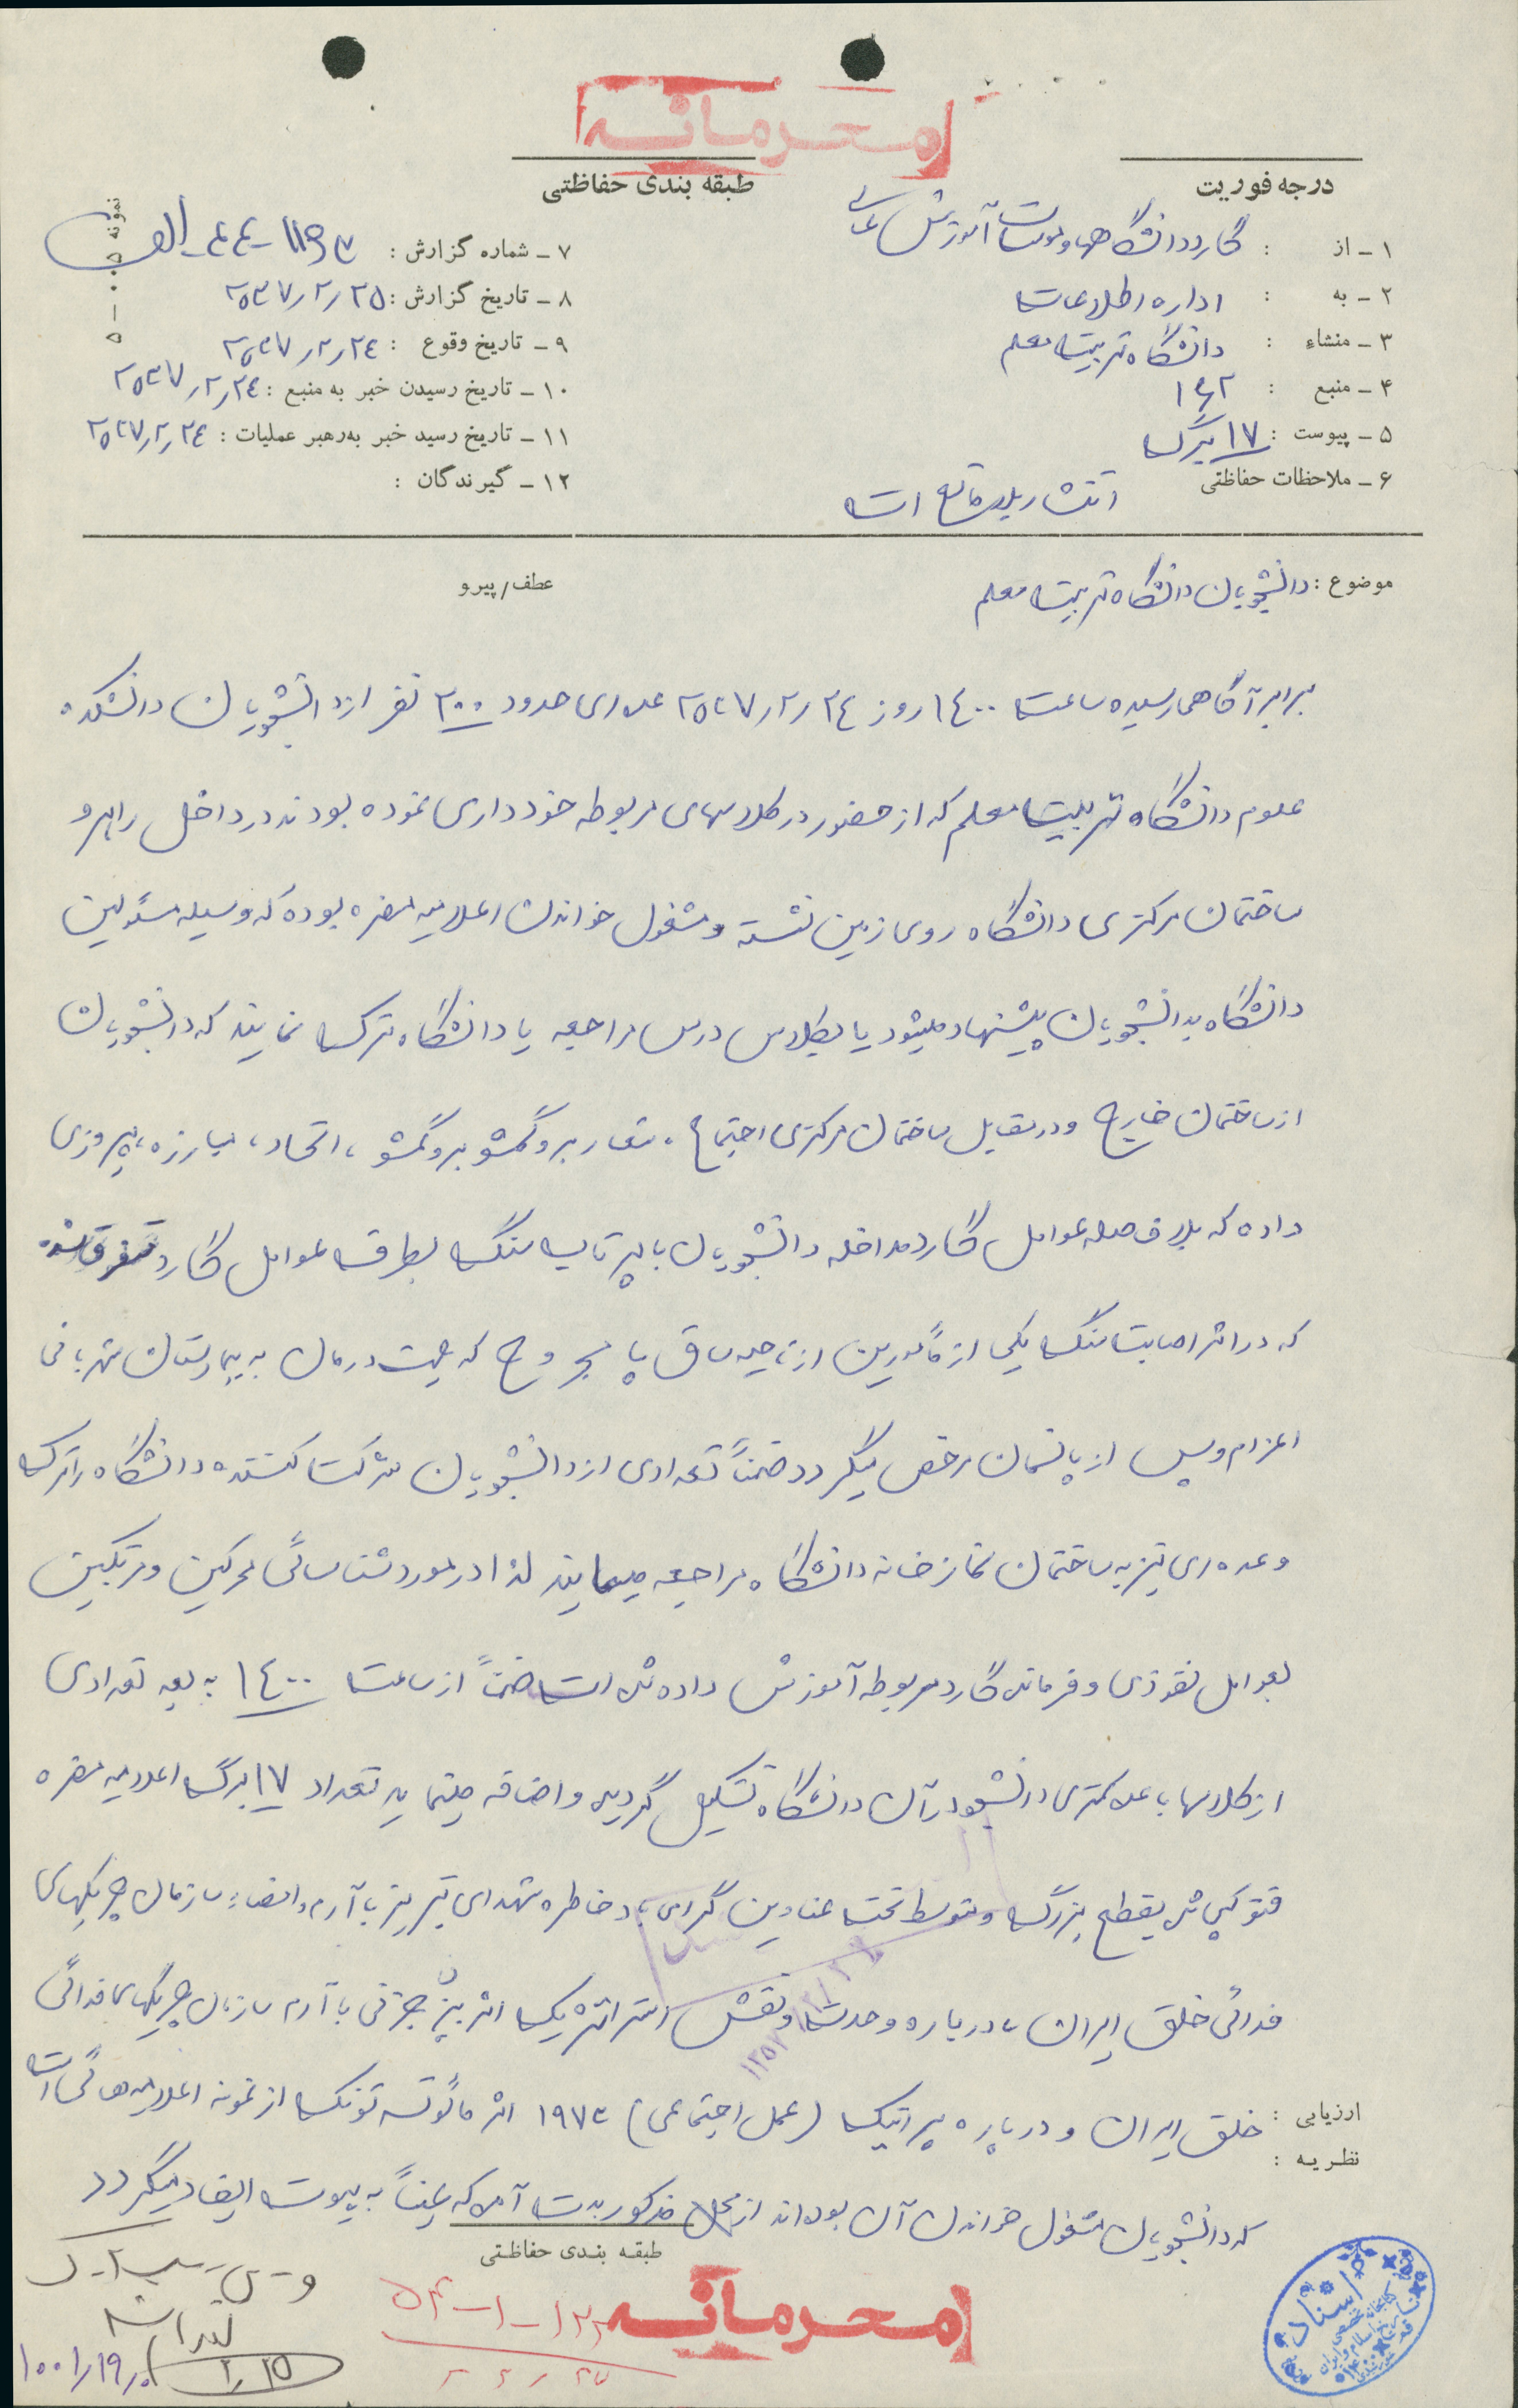 محرمانه
درجه فوریت
طبقه بندی حفاظتی
۱ـ از : گارد دانشگاهها و موسسات آموزش عالی
۲ـ به : اداره اطلاعات
۳ـ منشاء : دانشگاه تربیت معلم
۴ـ منبع :
۵ـ پیوست : ۱۷ برگ
۶ـ ملاحظات حفاظتی انتشار بلامانع است
۷ـ شماره گزارش : الف
۸ـ تاریخ گزارش : ۲۵۳۷/۲/۲۵
۹ـ تاریخ وقوع : ۲۵۳۷/۲/۲٤
۱۰ـ تاریخ رسیدن خبر به منبع : ۲۵۳۷/۲/۲٤
۱۱ـ تاریخ رسید خبر به‌رهبر عملیات : ۲۵۳۷/۲/۲٤
۱۲ـ گیرندگان :
موضوع : دانشجویان دانشگاه تربیت معلم
عطف/پیرو
برابر آگاهی رسیده ساعت ۱٤۰۰ روز ۲۵۳۷/۲/۲٤ عده‌ای حدود ۲۰۰ نفر از دانشجویان دانشکده
علوم دانشگاه تربیت معلم که از حضور در کلاسهای مربوطه خودداری نموده بودند در داخل راهرو
ساختمان مرکزی دانشگاه روی زمین نشسته و مشغول خواندن اعلامیه مضره بوده که وسیله مسئولین
دانشگاه بدانشجویان پیشنهاد میشود یا بکلاس درس مراجعه یا دانشگاه ترک نمایند که دانشجویان
از ساختمان خارج و در مقابل ساختمان مرکزی اجتماع، شعار برو گمشو برو گمشو، اتحاد، مبارزه، پیروزی
داده که بلافاصله عوامل گارد مداخله دانشجویان با پرتاب سنگ بطرف عوامل گارد متفرق شده
که در اثر اصابت سنگ یکی از مأمورین از ناحیه ساق پا مجروح که جهت درمان به بیمارستان شهربانی
اعزام و پس از پانسمان مرخص میگردد ضمناً تعدادی از دانشجویان شرکت کننده دانشگاه را ترک
و عده‌ای نیز به ساختمان نمازخانه دانشگاه مراجعه مینمایند لذا در مورد شناسائی محرکین و مرتکبین
بعوامل نفوذی و فرمانده گارد مربوطه آموزش داده شده است ضمناً از ساعت ۱٤۰۰ به بعد تعدادی
از کلاسها با عده کمتری دانشجو در آن دانشگاه تشکیل گردیده و اضافه مینماید تعداد ۱۷ برگ اعلامیه مضره
فتوکپی شده بقطع بزرگ و متوسط تحت عناوین گرامی باد خاطره شهدای تبریز با آرم و امضاء سازمان چریکهای
فدائی خلق ایران، درباره وحدت و نقش استراتژیک اثر بیژن جزنی با آرم سازمان چریکهای فدائی
خلق ایران و درباره پراتیک (عمل اجتماعی) ۱۹۷۳ اثر مائوتسه تونگ از نمونه اعلامیه‌هائی است
که دانشجویان مشغول خواندن آن بوده‌اند از محل مذکور بدست آمده که عیناً به پیوست ایفاد میگردد
ارزیابی :
نظریه :
طبقه بندی حفاظتی
محرمانه
۲/۲۵
اسناد